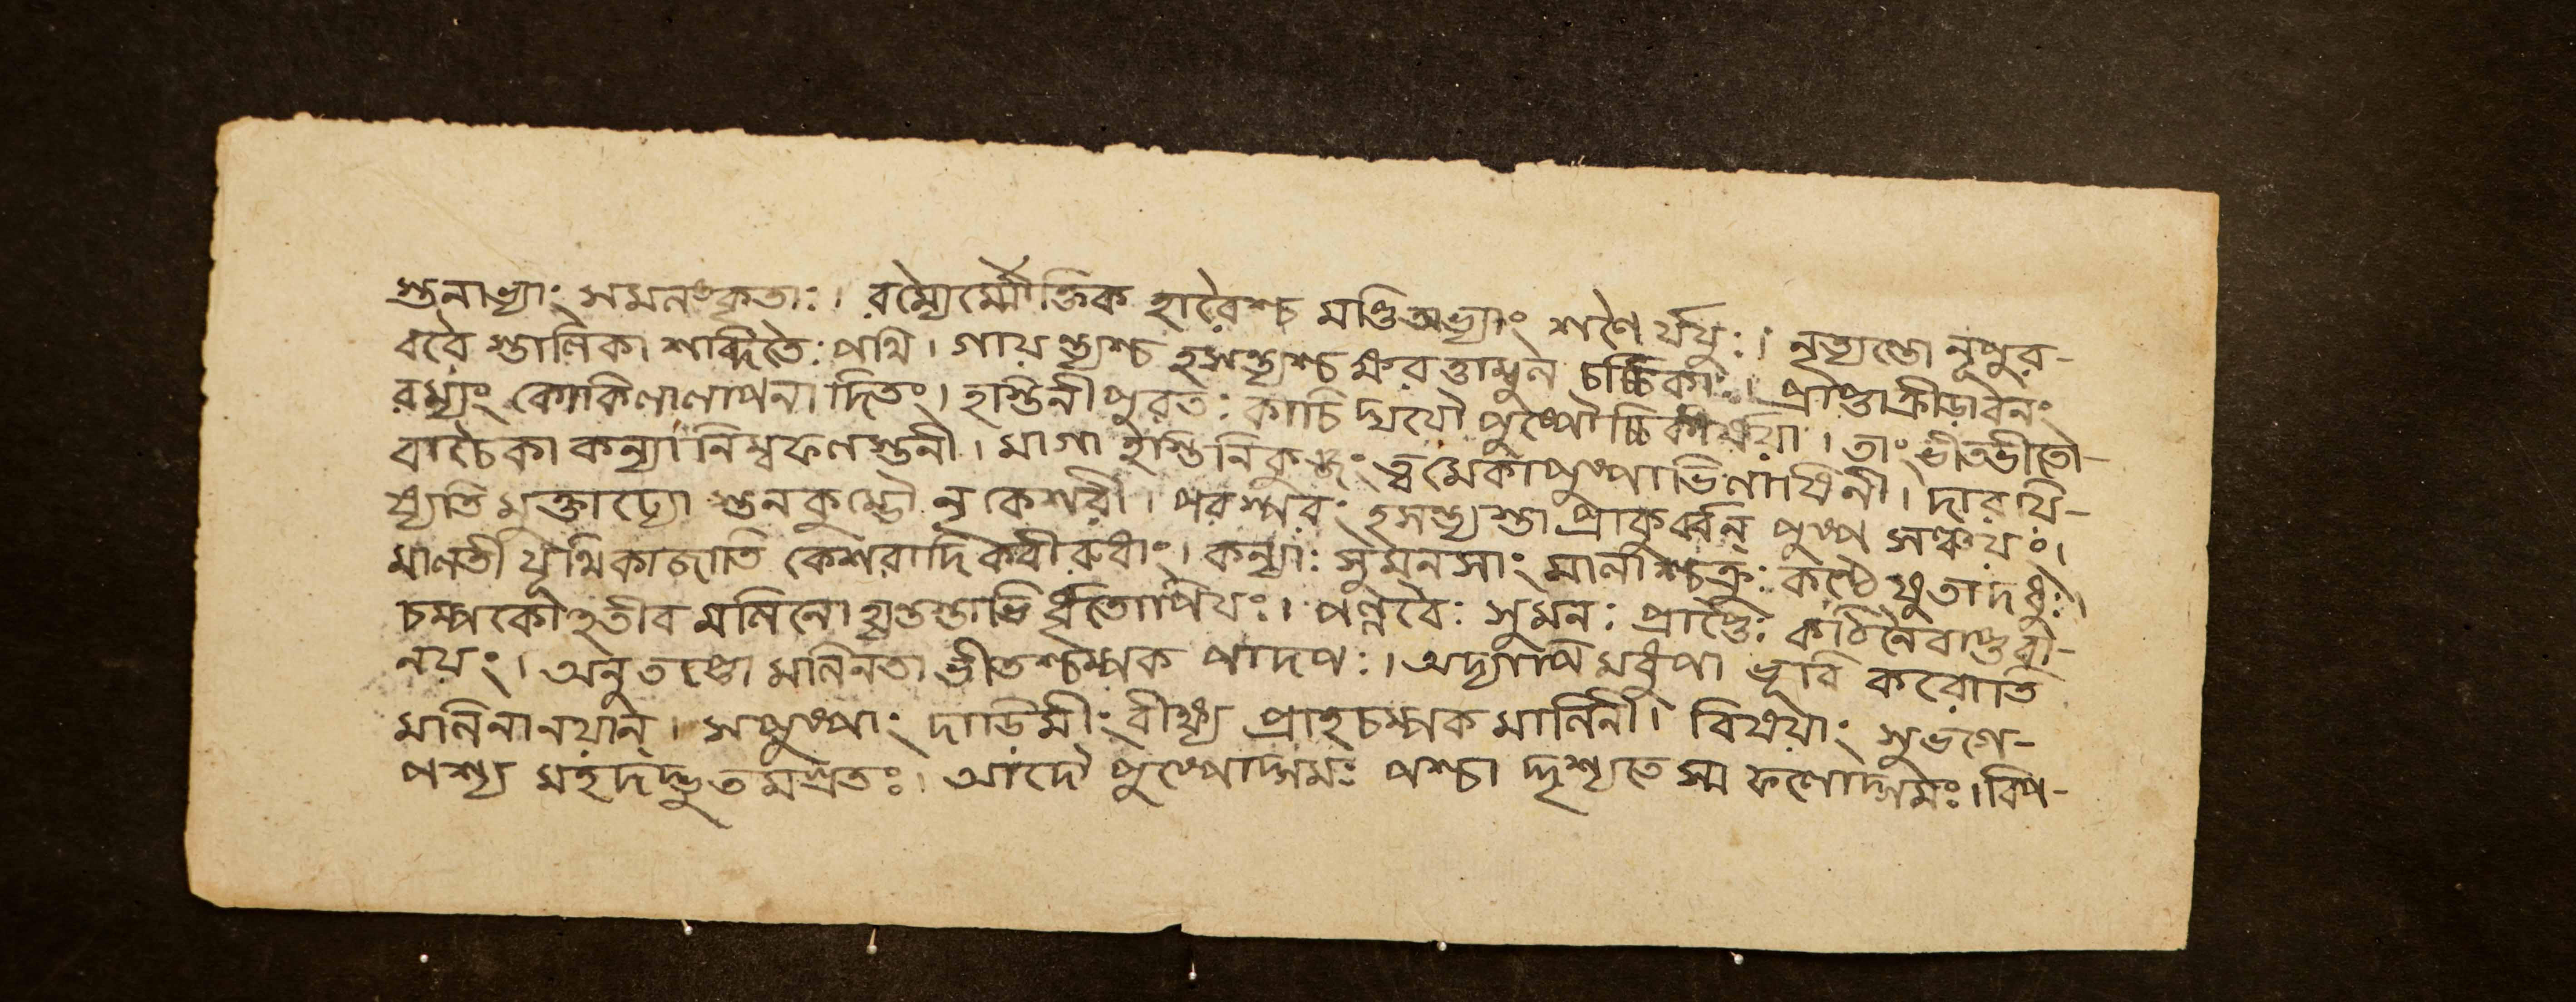 স্তনাভ্যাং সমনংকৃতাঃ। রম্যৈর্ম্মৌক্তিক হারৈশ্চ মণ্ডিতাভ্যাং শনৈ র্যযুঃ। নৃত্যন্তো নূপুর-
রবৈ স্তালিকা শব্দিতৈঃ পথি। গায়ন্ত্যশ্চ হসন্ত্যশ্চ ক্ষরত্তাম্বূল চর্চ্চিকাঃ। প্রাপ্তাক্রীড়াবনং
রম্যং কোকিলালাপনাদিতং। হস্তিনীপুরতঃ কাচি দ্যযৌ পুষ্পৌচ্চিকীর্ষয়া। তাং ভীতভীতো-
বাচৈকা কন্যা নিম্বফলস্তনী। মাগা হস্তিনিকুঞ্জং ত্বমেকাপুষ্পাভিলাষিনী। দারয়ি-
ষ্যতি মুক্তাঢ্যো স্তনকুম্ভৌ নৃকেশরী। পরস্পরং হসন্ত্যস্তা প্রাকুর্ব্বন্ পুষ্প সঞ্চয়ং।
মালতী যূথিকাজাতি কেশরাদিকবীরুধাং। কন্যাঃ সুমনসাং মালাশ্চক্রুঃ কণ্ঠে যুতা দধুঃ।
চম্পকৌহতীব মলিনো হ্যস্তস্তাভি র্ধৃতোপিযঃ। পল্লবৈঃ সুমনঃ প্রাপ্তৈঃ কঠিনৈবাস্তুবা-
নয়ং। অনুতপ্তো মলিনতা ভীতশ্চম্পক পাদপঃ। অদ্যাপি মধুপা ভূরি করোতি
মলিনানয়ান্। সপুষ্পাং দাড়িমীং বীক্ষ্য প্রাহ চম্পকমালিনী। বিযয়াং সুভগে-
পশ্য মহদদ্ভুতমগ্রতঃ। আদৌ পুষ্পোদ্গমঃ পশ্চা দ্দৃশ্যতে স্ম ফলোদ্গমঃ। বিপ-